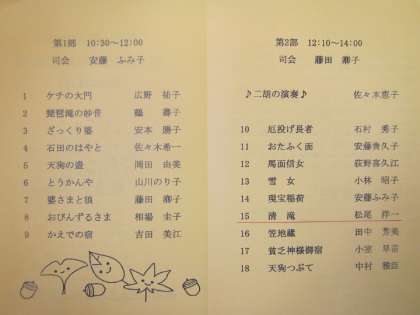 第1部 10:30~12:00
司会 安藤 ふみ子
1 ケチの大門 広野 祐子
2 琵琶滝の妙音 鶴 壽子
3 ざっくり婆 安本 勝子
4 石田のはやと 佐々木希一
5 天狗の壷 岡田 由美
6 とうかんや 山川のり子
7 婆さまと狼 藤田 潮子
8 おびんずるさま 相場 圭子
9 かえでの宿 吉田 美江
第2部 12:10~14:00
司会 藤田 潮子
♪二胡の演奏♪ 佐々木恵子
10 厄投げ長者 石村 秀子
11 おたふく面 安藤貴久子
12 馬面信女 荻野喜久江
13 雪女 小林 昭子
14 現宝稲荷 安藤ふみ子
15 清滝 松尾 洋一
16 笠地蔵 田中 芳美
17 貧乏神様御宿 小室 早苗
18 天狗つぶて 中村 雅臣